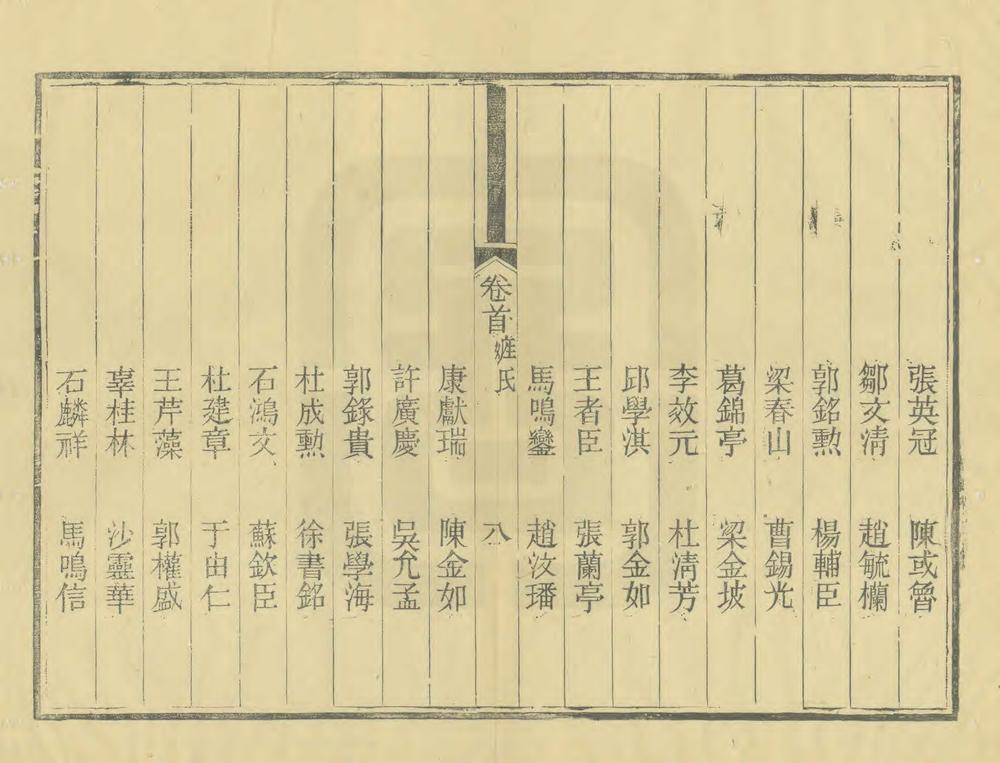 張英冠 陳或魯
鄒文清 趙毓欄
郭銘勲 楊輔臣
梁春山 曹錫光
葛錦亭 梁金坡
李效元 杜清芳
邱學淇 郭金如
王者臣 張蘭亭
馬鳴鑾 趙汝璠
卷首 氏 八
康獻瑞 陳金如
許廣慶 吳允孟
郭錄貴 張學海
杜成勲 徐書銘
石鴻文 蘇欽臣
杜建章 于由仁
王芹藻 郭權盛
辜桂林 沙靈華
石麟祥 馬鳴信